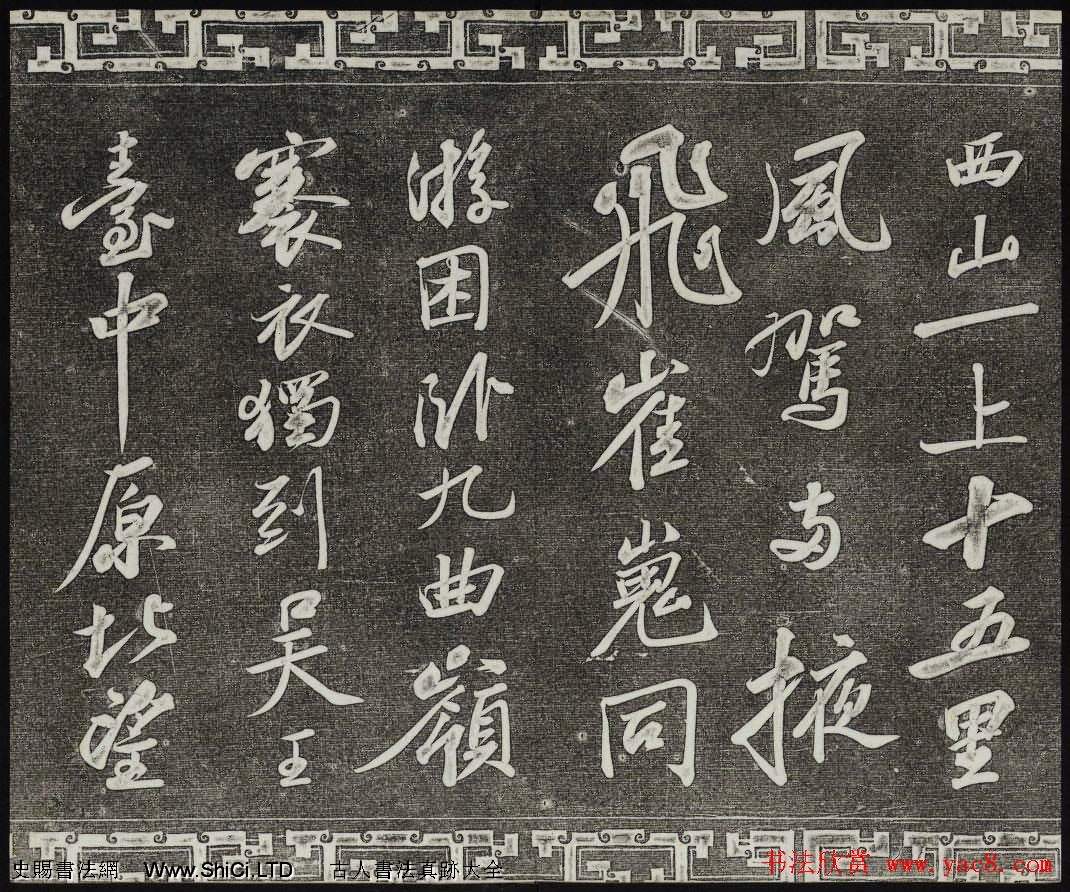 西山一上十五里
風駕兩掖
飛崔嵬同
游困卧九曲嶺
褰衣獨到吳王
臺中原北望
史賜書法網. Www.ShiCi.LTD 古人書法真跡大全
书法欣赏 www.yac8.com